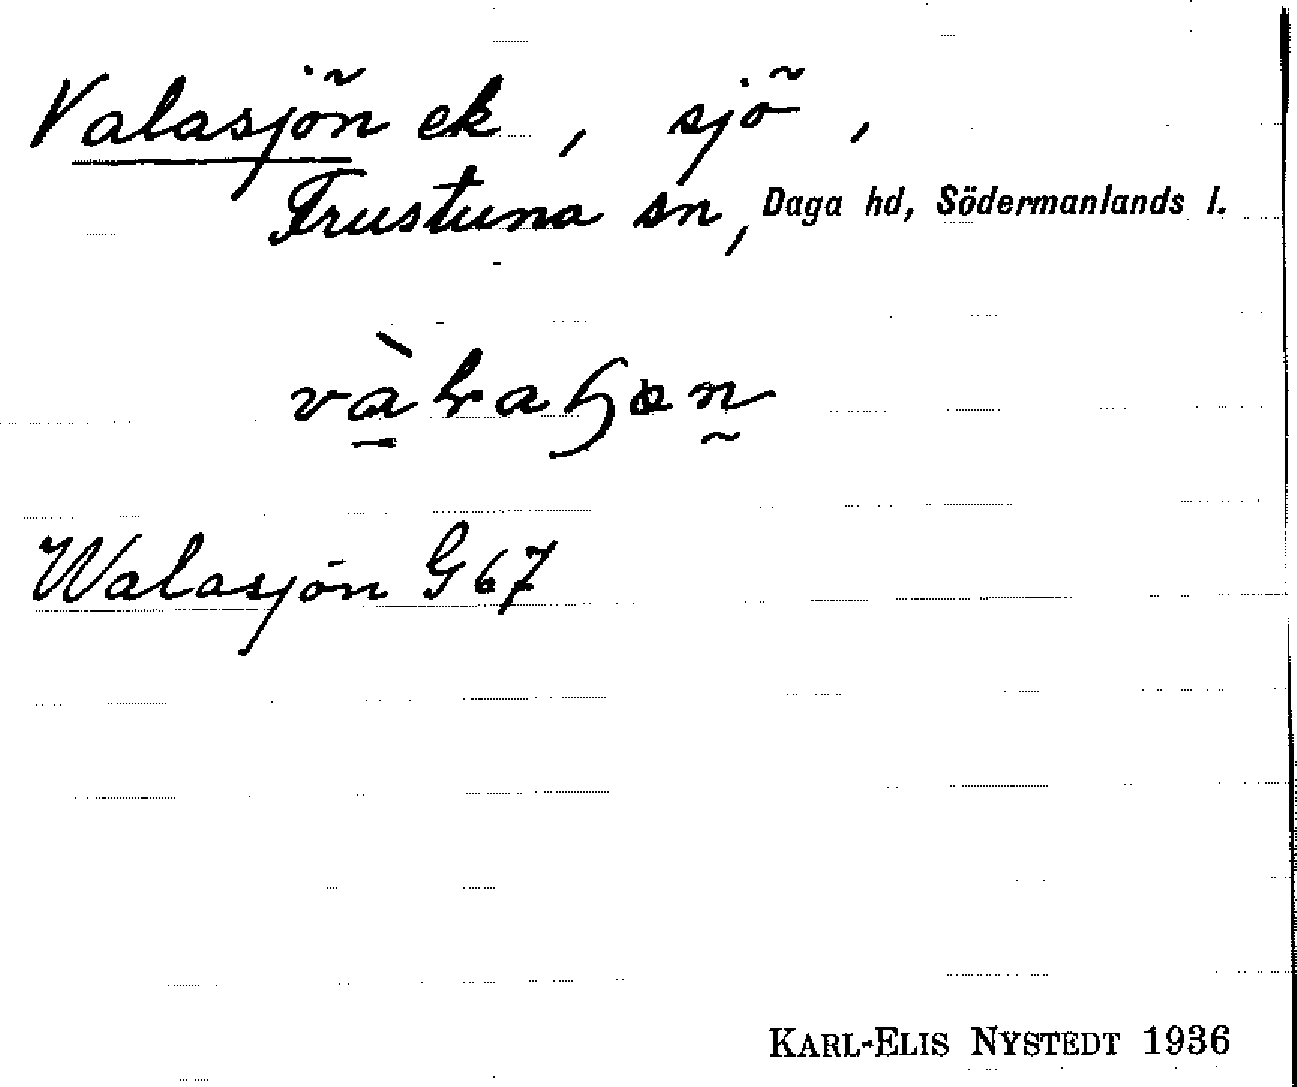 Valasjön ek, sjö,
Frustuna sn, Daga hd, Södermanlands l.
Walasjön G 67
KARL-ELIS NYSTEDT 1936